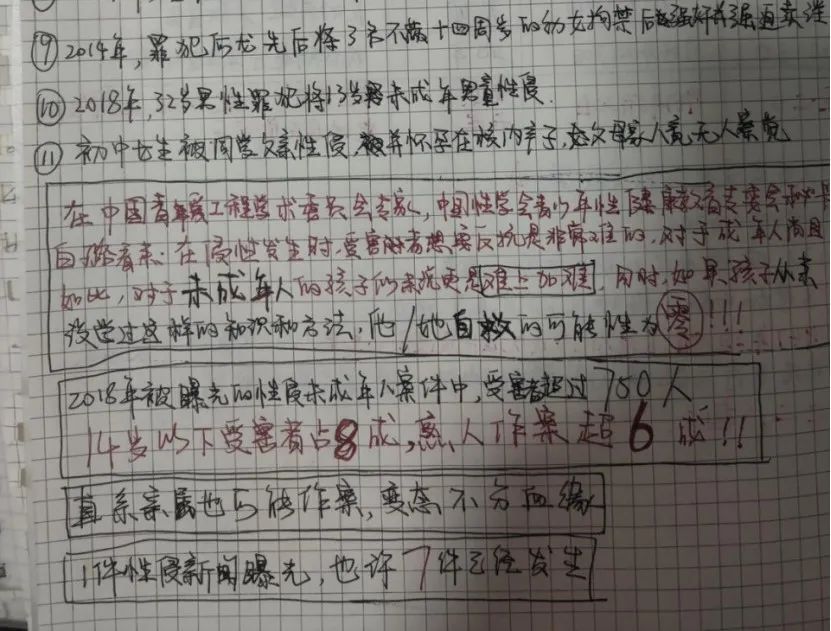 ⑨ 2014年,罪犯阿龙先后将3名不满十四周岁的幼女拘禁后强奸并强迫卖淫
⑩ 2018年,32岁男性罪犯将13岁未成年男童性侵
⑪ 初中女生被同学父亲性侵,并怀孕在校内产子,处父母家人竟无人察觉
在中国青年爱工程学术委员会专家,中国性学会青少年性健康教育专委会
看来:在侵性发生时,受害者想要反抗是非常难的,对于成年人尚且
如此,对于未成年人的孩子们来说更是难上加难,同时,如果孩子从来
没学过这样的知识和方法,他/她自救的可能性为零!!!
2018年被曝光的性侵未成年人案件中,受害者超过750人
14岁以下受害者占8成,熟人作案超6成!!
直系亲属也可能作案,变态不分血缘
1件性侵新闻曝光,也许7件已经发生